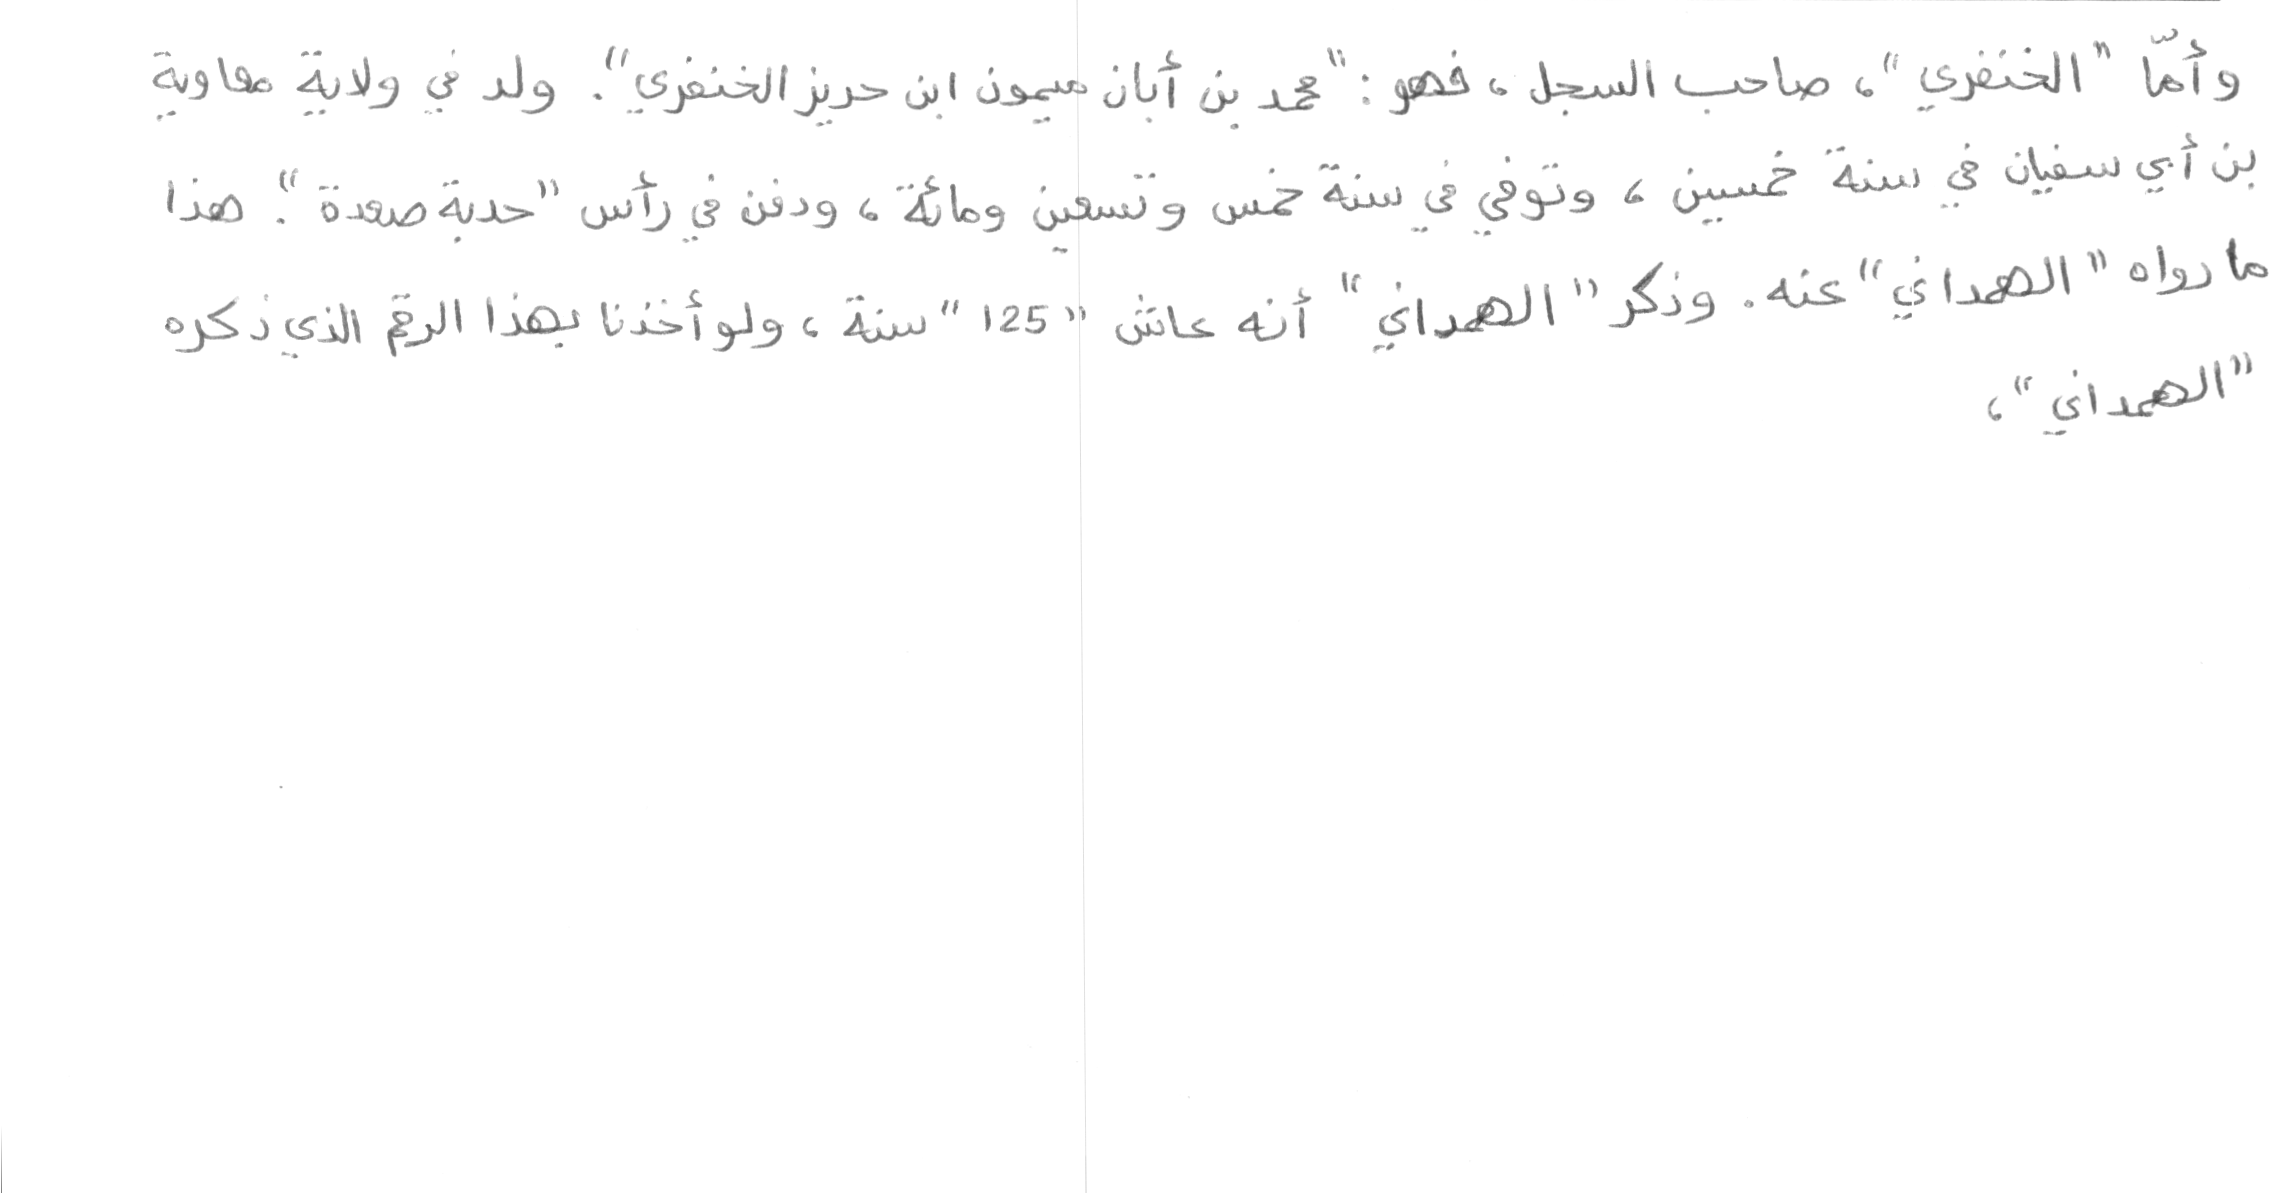 وأمّا "الخنفري"، صاحب السجل، فهو: "محمد بن أبان ميمون ابن حريز الخنفري". ولد في ولاية معاوية
بن أبي سفيان في سنة خمسين، وتوفي في سنة خمس وتسعين ومائة، ودفن في رأس "حدبة صعدة". هذا
ما رواه "الهمداني" عنه. وذكر "الهمداني" أنه عاش "125" سنة، ولو أخذنا بهذا الرقم الذي ذكره
"الهمداني"،